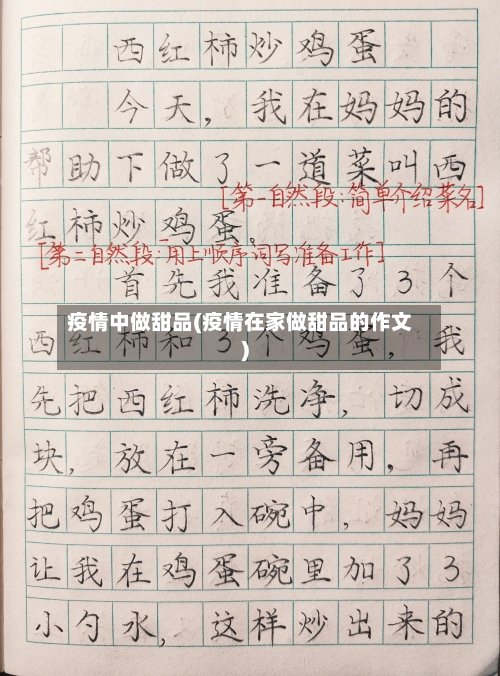 西红柿炒鸡蛋
今天,我在妈妈的
帮助下做了一道菜叫西
[第一自然段:简单介绍菜名]
红柿炒鸡蛋。
[第二自然段:用上顺序词写准备工作]
首先我准备了3个
疫情中做甜品(疫情在家做甜品的作文
)
西红柿和3个鸡蛋,我
先把西红柿洗净,切成
块,放在一旁备用,再
把鸡蛋打入碗中,妈妈
让我在鸡蛋碗里加了3
小勺水,这样炒出来的